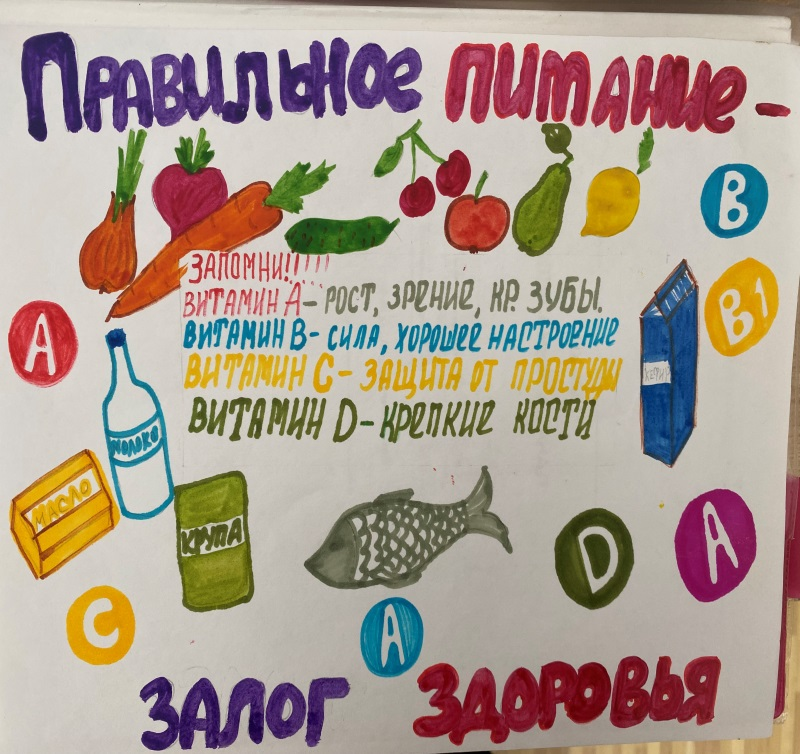 ПРАВИЛЬНОЕ ПИТАНИЕ-
B
ЗАПОМНИ!!!!!!
ВИТАМИН А- РОСТ, ЗРЕНИЕ, КР. ЗУБЫ.
ВИТАМИН В- СИЛА, ХОРОШЕЕ НАСТРОЕНИЕ
ВИТАМИН С- ЗАЩИТА ОТ ПРОСТУДЫ
ВИТАМИН D- КРЕПКИЕ КОСТИ
B1
A
КЕФИР
МОЛОКО
МАСЛО
КРУПА
D
A
C
A
ЗАЛОГ ЗДОРОВЬЯ